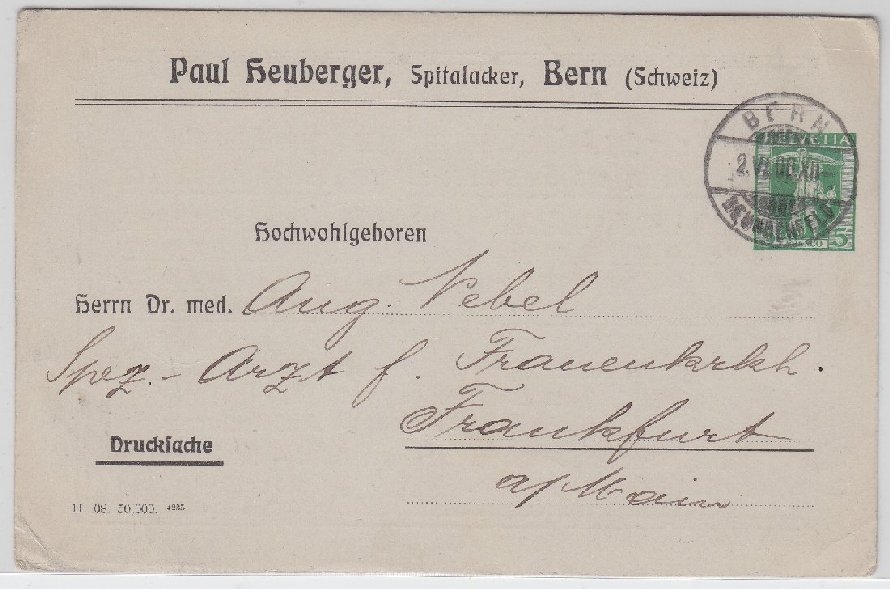 Paul Heuberger, Spitalacker, Bern (Schweiz)
BERN
HELVETIA
5
Hochwohlgeboren
Herrn Dr. med. Aug. Nebel
Spez.- Arzt f. Frauenkrkh.
Frankfurt
a/Main
Drucksache
11 08. 50,000.